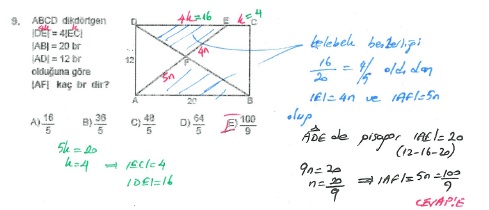 9. ABCD dikdörtgen
|DE| = 4|EC|
4k k
|AB| = 20 br
|AD| = 12 br
olduğuna göre
|AF| kaç br dir?
D 4k=16 E C k=4
12
4n
F
5n
A 20 B
A) 16/5 B) 36/5 C) 48/5 D) 64/5 E) 100/9
5k = 20
k = 4 ⇒ |EC| = 4
|DE| = 16
kelebek benzerliği
16/20 = 4/5 olduğundan
|EF| = 4n ve |AF| = 5n
olup
ADE de pisagor |AE| = 20
(12-16-20)
9n = 20
n = 20/9 ⇒ |AF| = 5n = 100/9
CEVAP: E